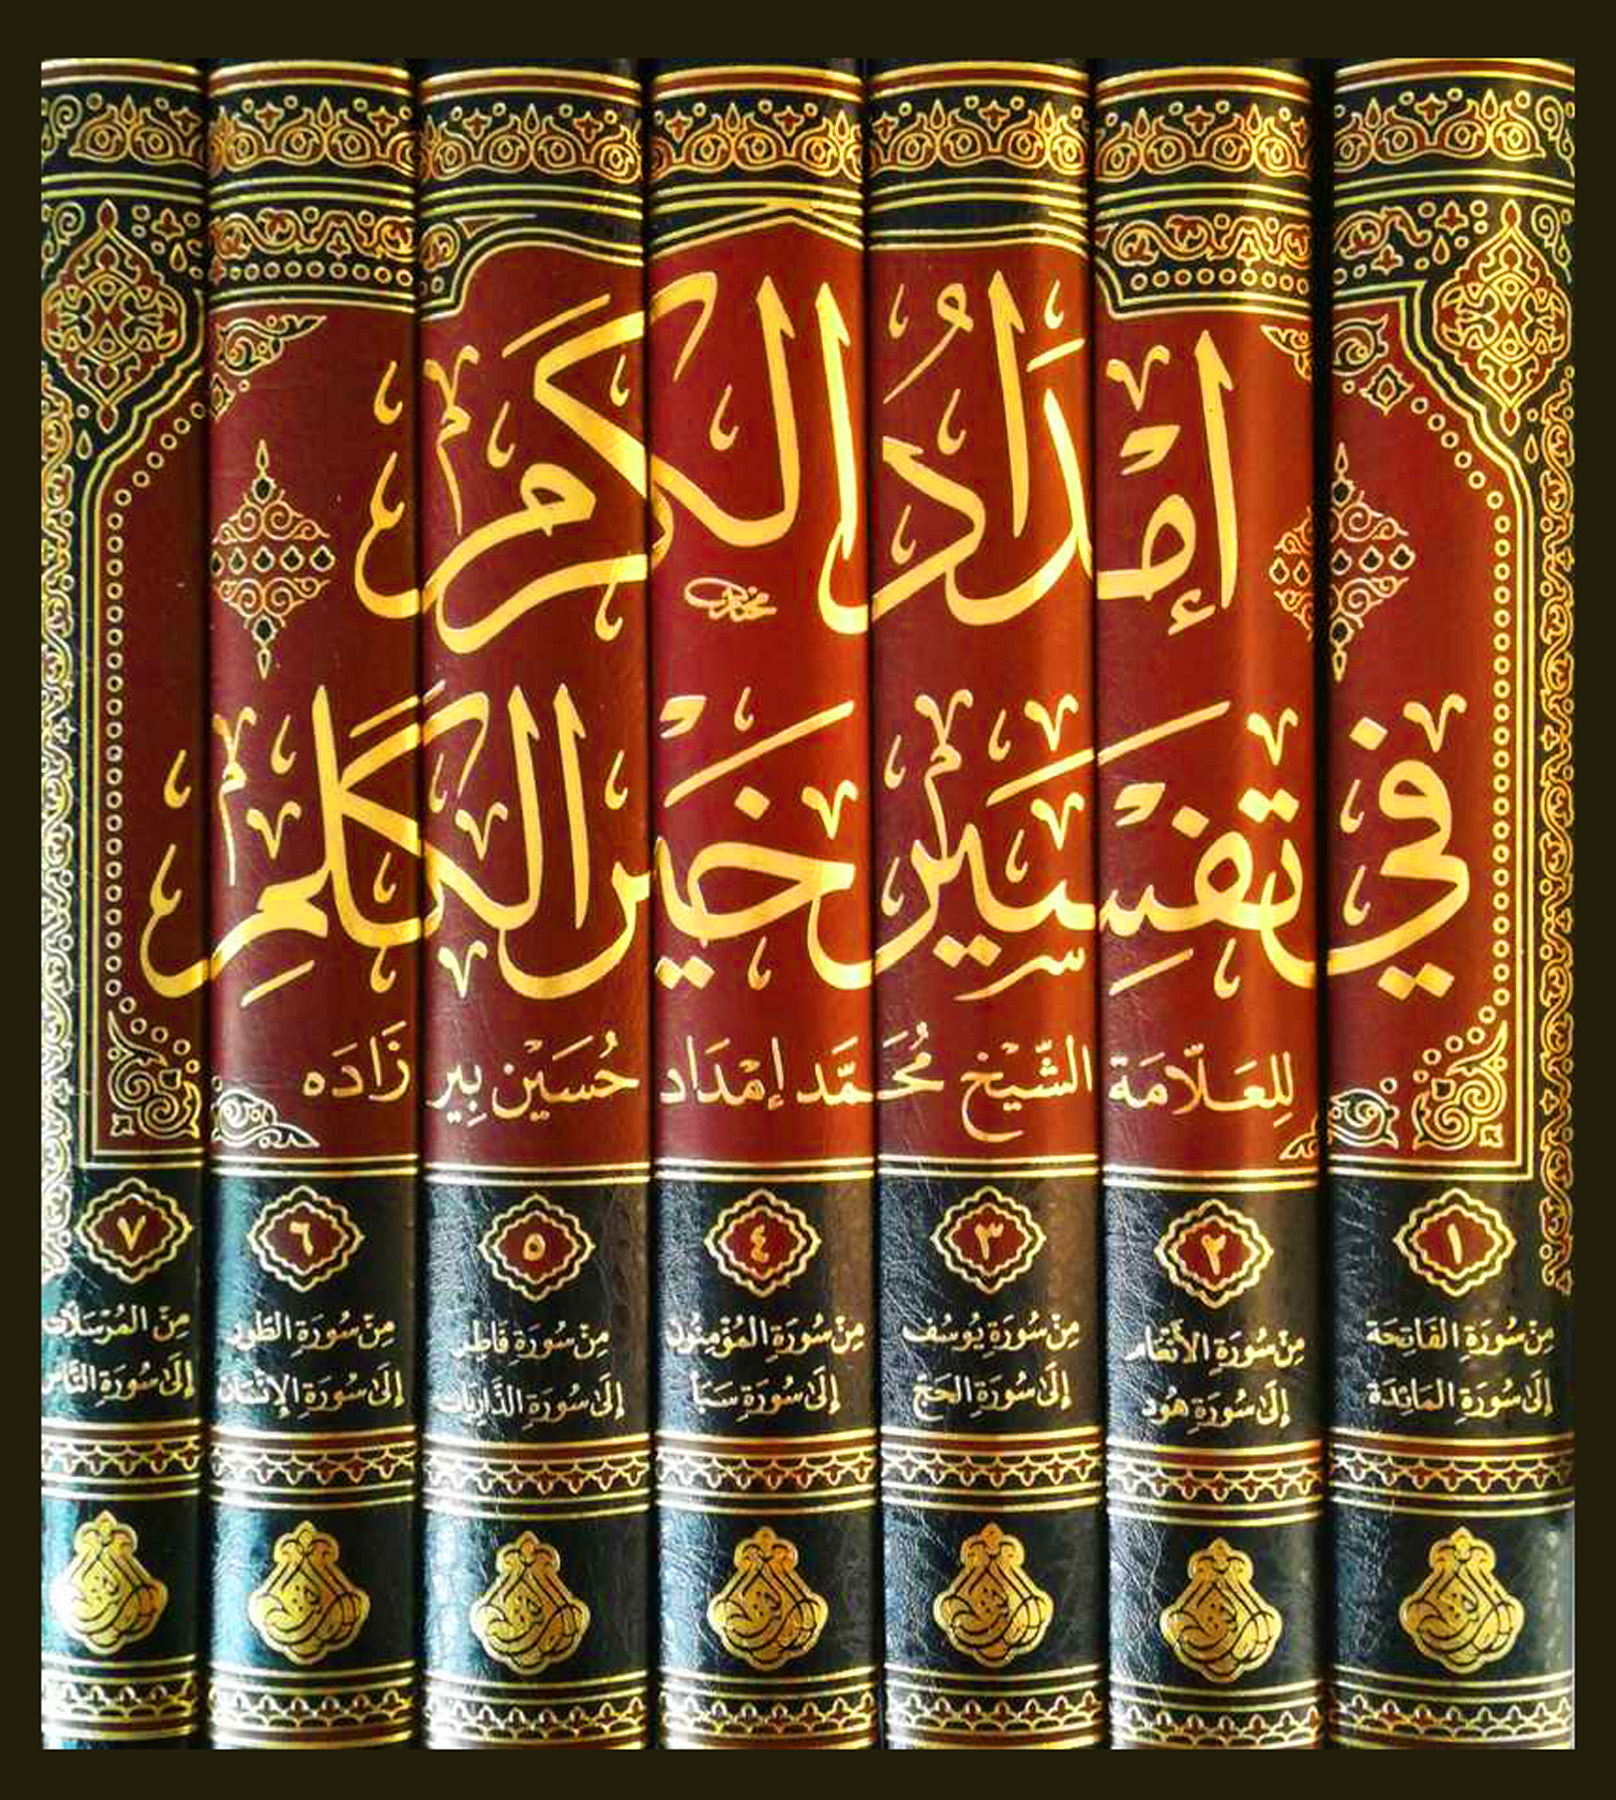 إِمْدَادُ الكَرَمِ
فِي تَفْسِيرِ خَيْرِ الكَلِمِ
لِلعَلّامَة الشَّيْخ مُحَمَّد إمْدَاد حُسَيْن بِير زَادَه
١
مِنْ سُورَةِ الفَاتِحَة
إِلَىٰ سُورَةِ المَائِدَة
٢
مِنْ سُورَةِ الأَنْعَام
إِلَىٰ سُورَةِ هُود
٣
مِنْ سُورَةِ يُوسُف
إِلَىٰ سُورَةِ الحَجّ
٤
مِنْ سُورَةِ المُؤْمِنُون
إِلَىٰ سُورَةِ سَبَأ
٥
مِنْ سُورَةِ فَاطِر
إِلَىٰ سُورَةِ الذَّارِيَات
٦
مِنْ سُورَةِ الطُّور
إِلَىٰ سُورَةِ الإِنْسَان
٧
مِنَ المُرْسَلَات
إِلَىٰ سُورَةِ النَّاس